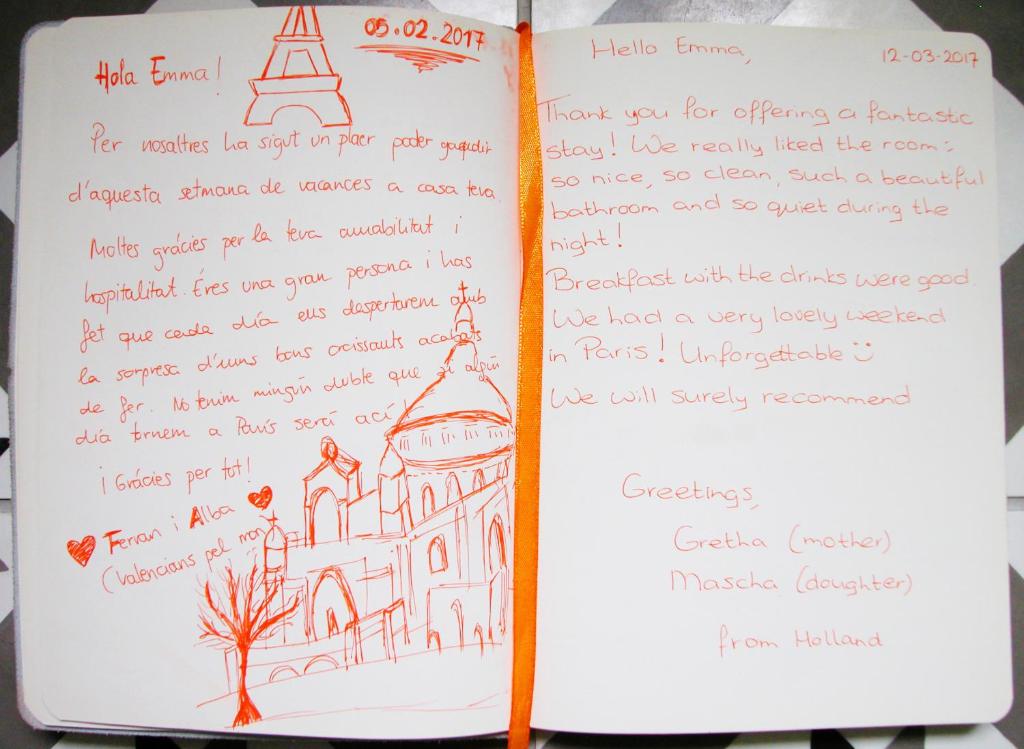 05.02.2017
Hola Emma!
Per nosaltres ha sigut un plaer poder gaudir
d'aquesta setmana de vacances a casa teva.
Moltes gràcies per la teva amabilitat i
hospitalitat. Eres una gran persona i has
fet que cada día ens despertarem amb
la sorpresa d'uns bons croissants acabats
de fer. No tenim mingún duble que si algún
día tornem a París será ací!
¡Gràcies per tot!
Ferran i Alba
(Valencians pel mon)
Hello Emma,
12-03-2017
Thank you for offering a fantastic
stay! We really liked the room:
so nice, so clean, such a beautiful
bathroom and so quiet during the
night!
Breakfast with the drinks were good.
We had a very lovely weekend
in Paris! Unforgettable
We will surely recommend
Greetings,
Gretha (mother)
Mascha (daughter)
from Holland